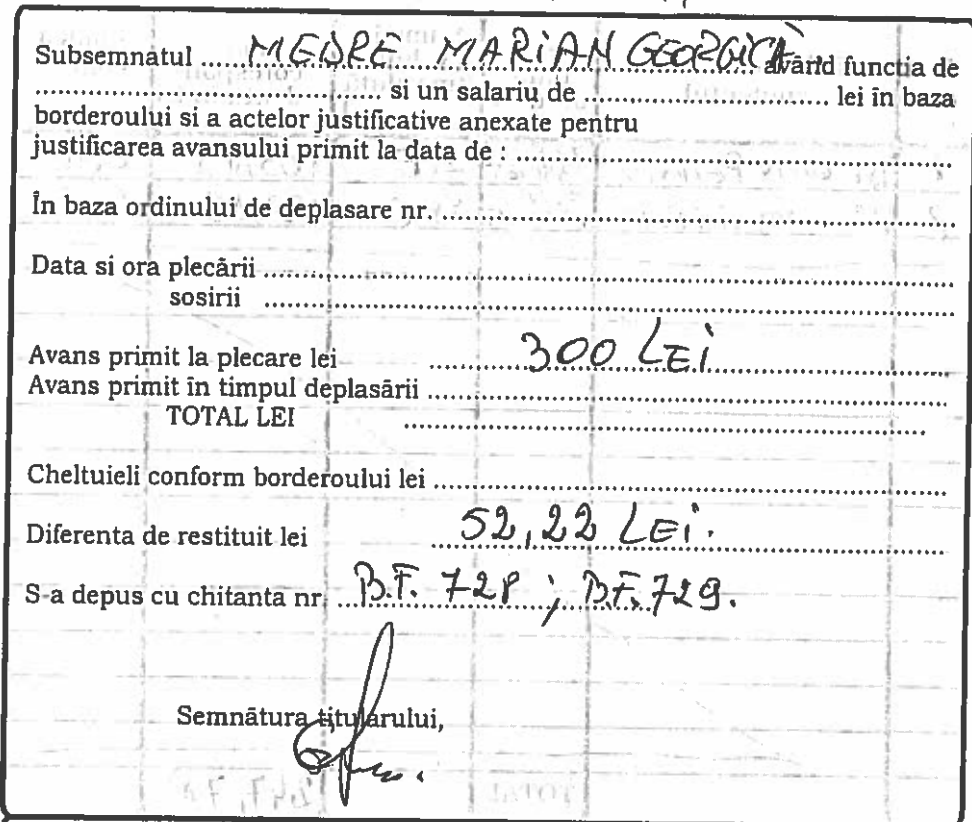 Subsemnatul ..... MEDRE MARIAN GEORGICĂ ..... avârid functia de
..................................... si un salariu de .......................... lei în baza
borderoului si a actelor justificative anexate pentru
justificarea avansului primit la data de : ..............................................
În baza ordinului de deplasare nr. .......................................................
Data si ora plecării ..............................................................................
sosirii ..............................................................................
Avans primit la plecare lei ......... 300 LEi .........
Avans primit în timpul deplasării ......................................................
TOTAL LEI ......................................................
Cheltuieli conform borderoului lei ......................................................
Diferenta de restituit lei ... 52,22 LEi. ...
S-a depus cu chitanta nr. ... B.F. 728 ; B.F. 729.
Semnătura titularului,